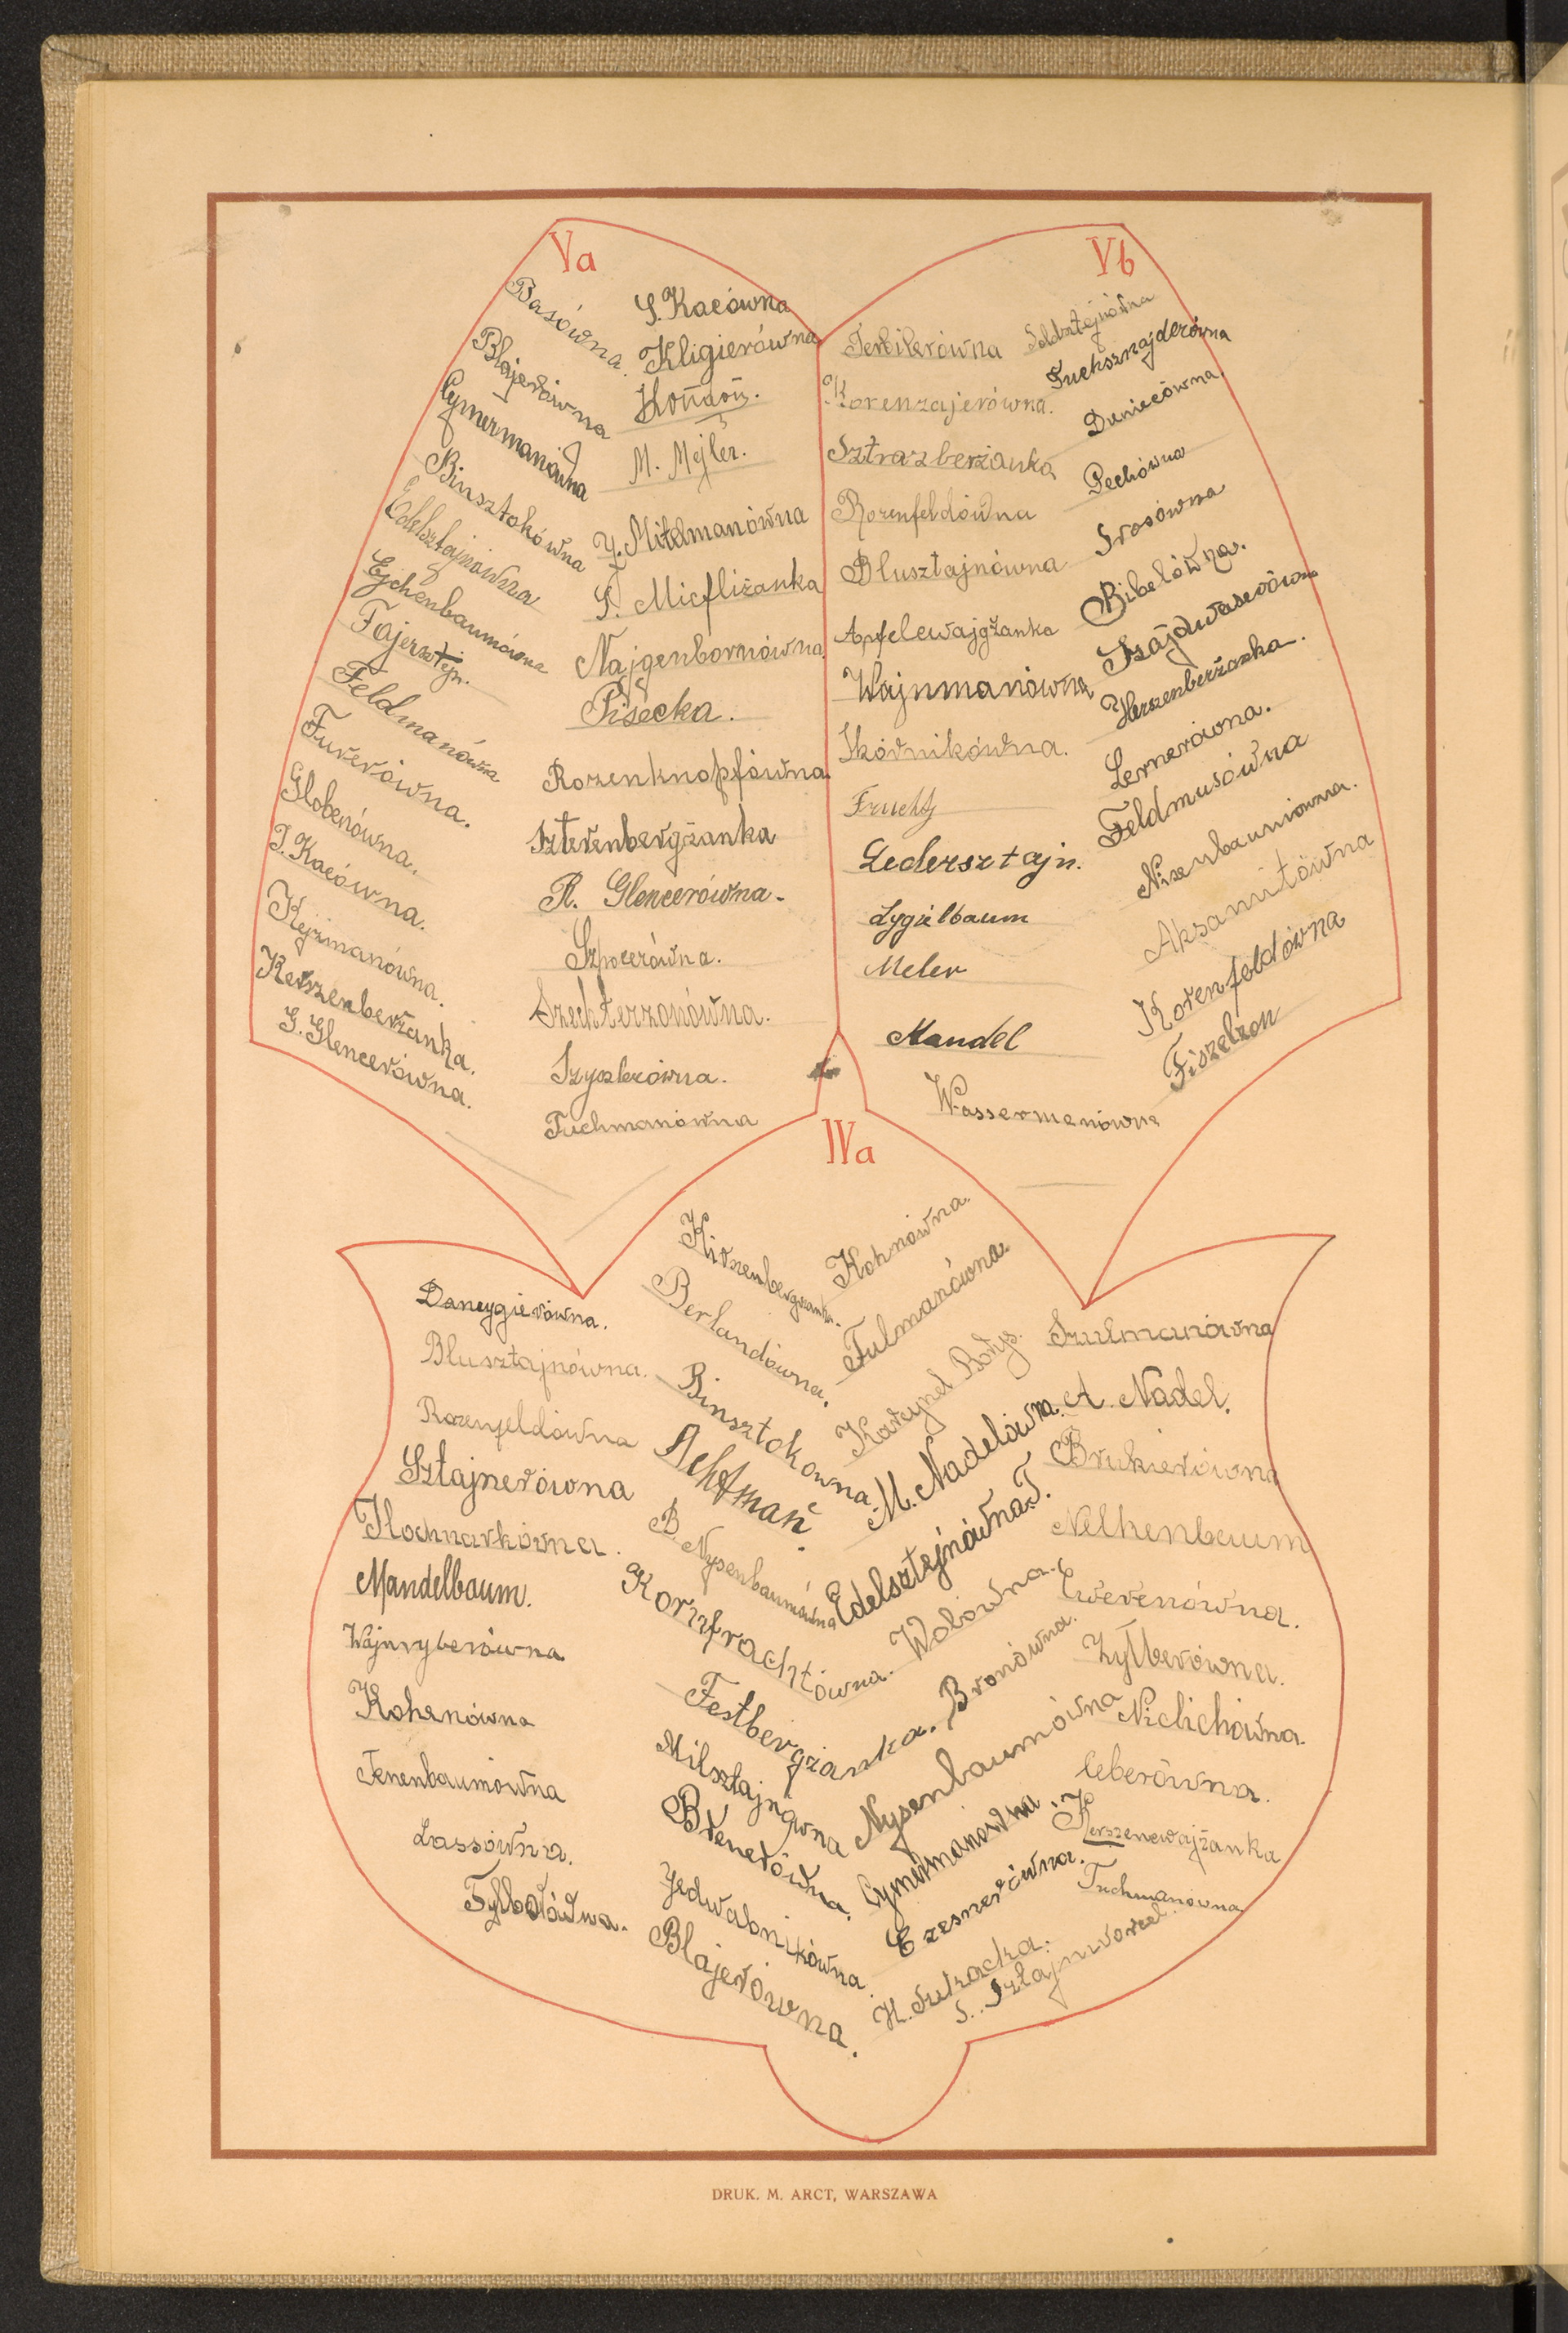 Va
Basówna.
Blajerówna
Cymermanówna
Binsztokówna
Edelsztajnówna
Ejchenbaumówna
Fajersztejn.
Feldmanówna
Furerówna.
Globenówna.
I. Kacówna.
Kejzmanówna.
Kerszenberżanka.
G. Glencerówna.
S. Kacówna
Kligierówna
Kondoń.
M. Mejler.
Y. Mitelmanówna
S. Micfliżanka
Najgenbornówna
Pisecka.
Rozenknopfówna
Szterenbergżanka
R. Glencerówna.
Szpocerówna.
Szechterzonówna.
Szyszlerówna.
Tuchmanówna
Vb
Korenzajerówna.
Sztrazberżanka
Rozenfeldówna
Blusztajnówna
Apfelewajgżanka
Wajnmanówna
Skórnikówna.
Frucht
Ledersztajn.
Zygielbaum
Meler
Mandel
Wassermanówna
Goldsztajnówna
Fuchsznajderówna
Duniecówna.
Pechówna
Srosówna
Bibelówna.
Szajdwaserówna
Herszenberżanka.
Lernerówna.
Feldmusówna
Nisenbaumówna.
Aksamitówna
Korenfeldówna
Fiszelzon
IVa
Dancygierówna.
Blusztajnówna.
Rozenfeldówna
Sztajnerówna
Tlochnarkówna.
Mandelbaum.
Wajnryberówna
Kohenówna
Tenenbaumówna
Lassówna.
Fylborówna.
Kirszenbergżanka.
Berlandówna.
Binsztokówna
Achtman.
B. Nysenbaumówna
Kornfrachtówna.
Festbergżanka.
Milsztajnówna
Brenerówna.
Jedwabnikówna.
Blajerówna.
Kohnówna.
Fulmanówna.
M. Nadelówna.
Edelsztejnówna T.
Wolówna.
Bronówna.
Nysenbaumówna
Cymermanówna.
Czesnerówna.
H. Sutracka.
S. Sztajnworcel.
Szulmanówna
A. Nadel.
Brukierówna
Nelkenbaum
Ewerenówna.
Zylberówna.
Nichichówna.
Ceberówna.
Kerszenewajżanka
Tuchmanówna
DRUK. M. ARCT, WARSZAWA